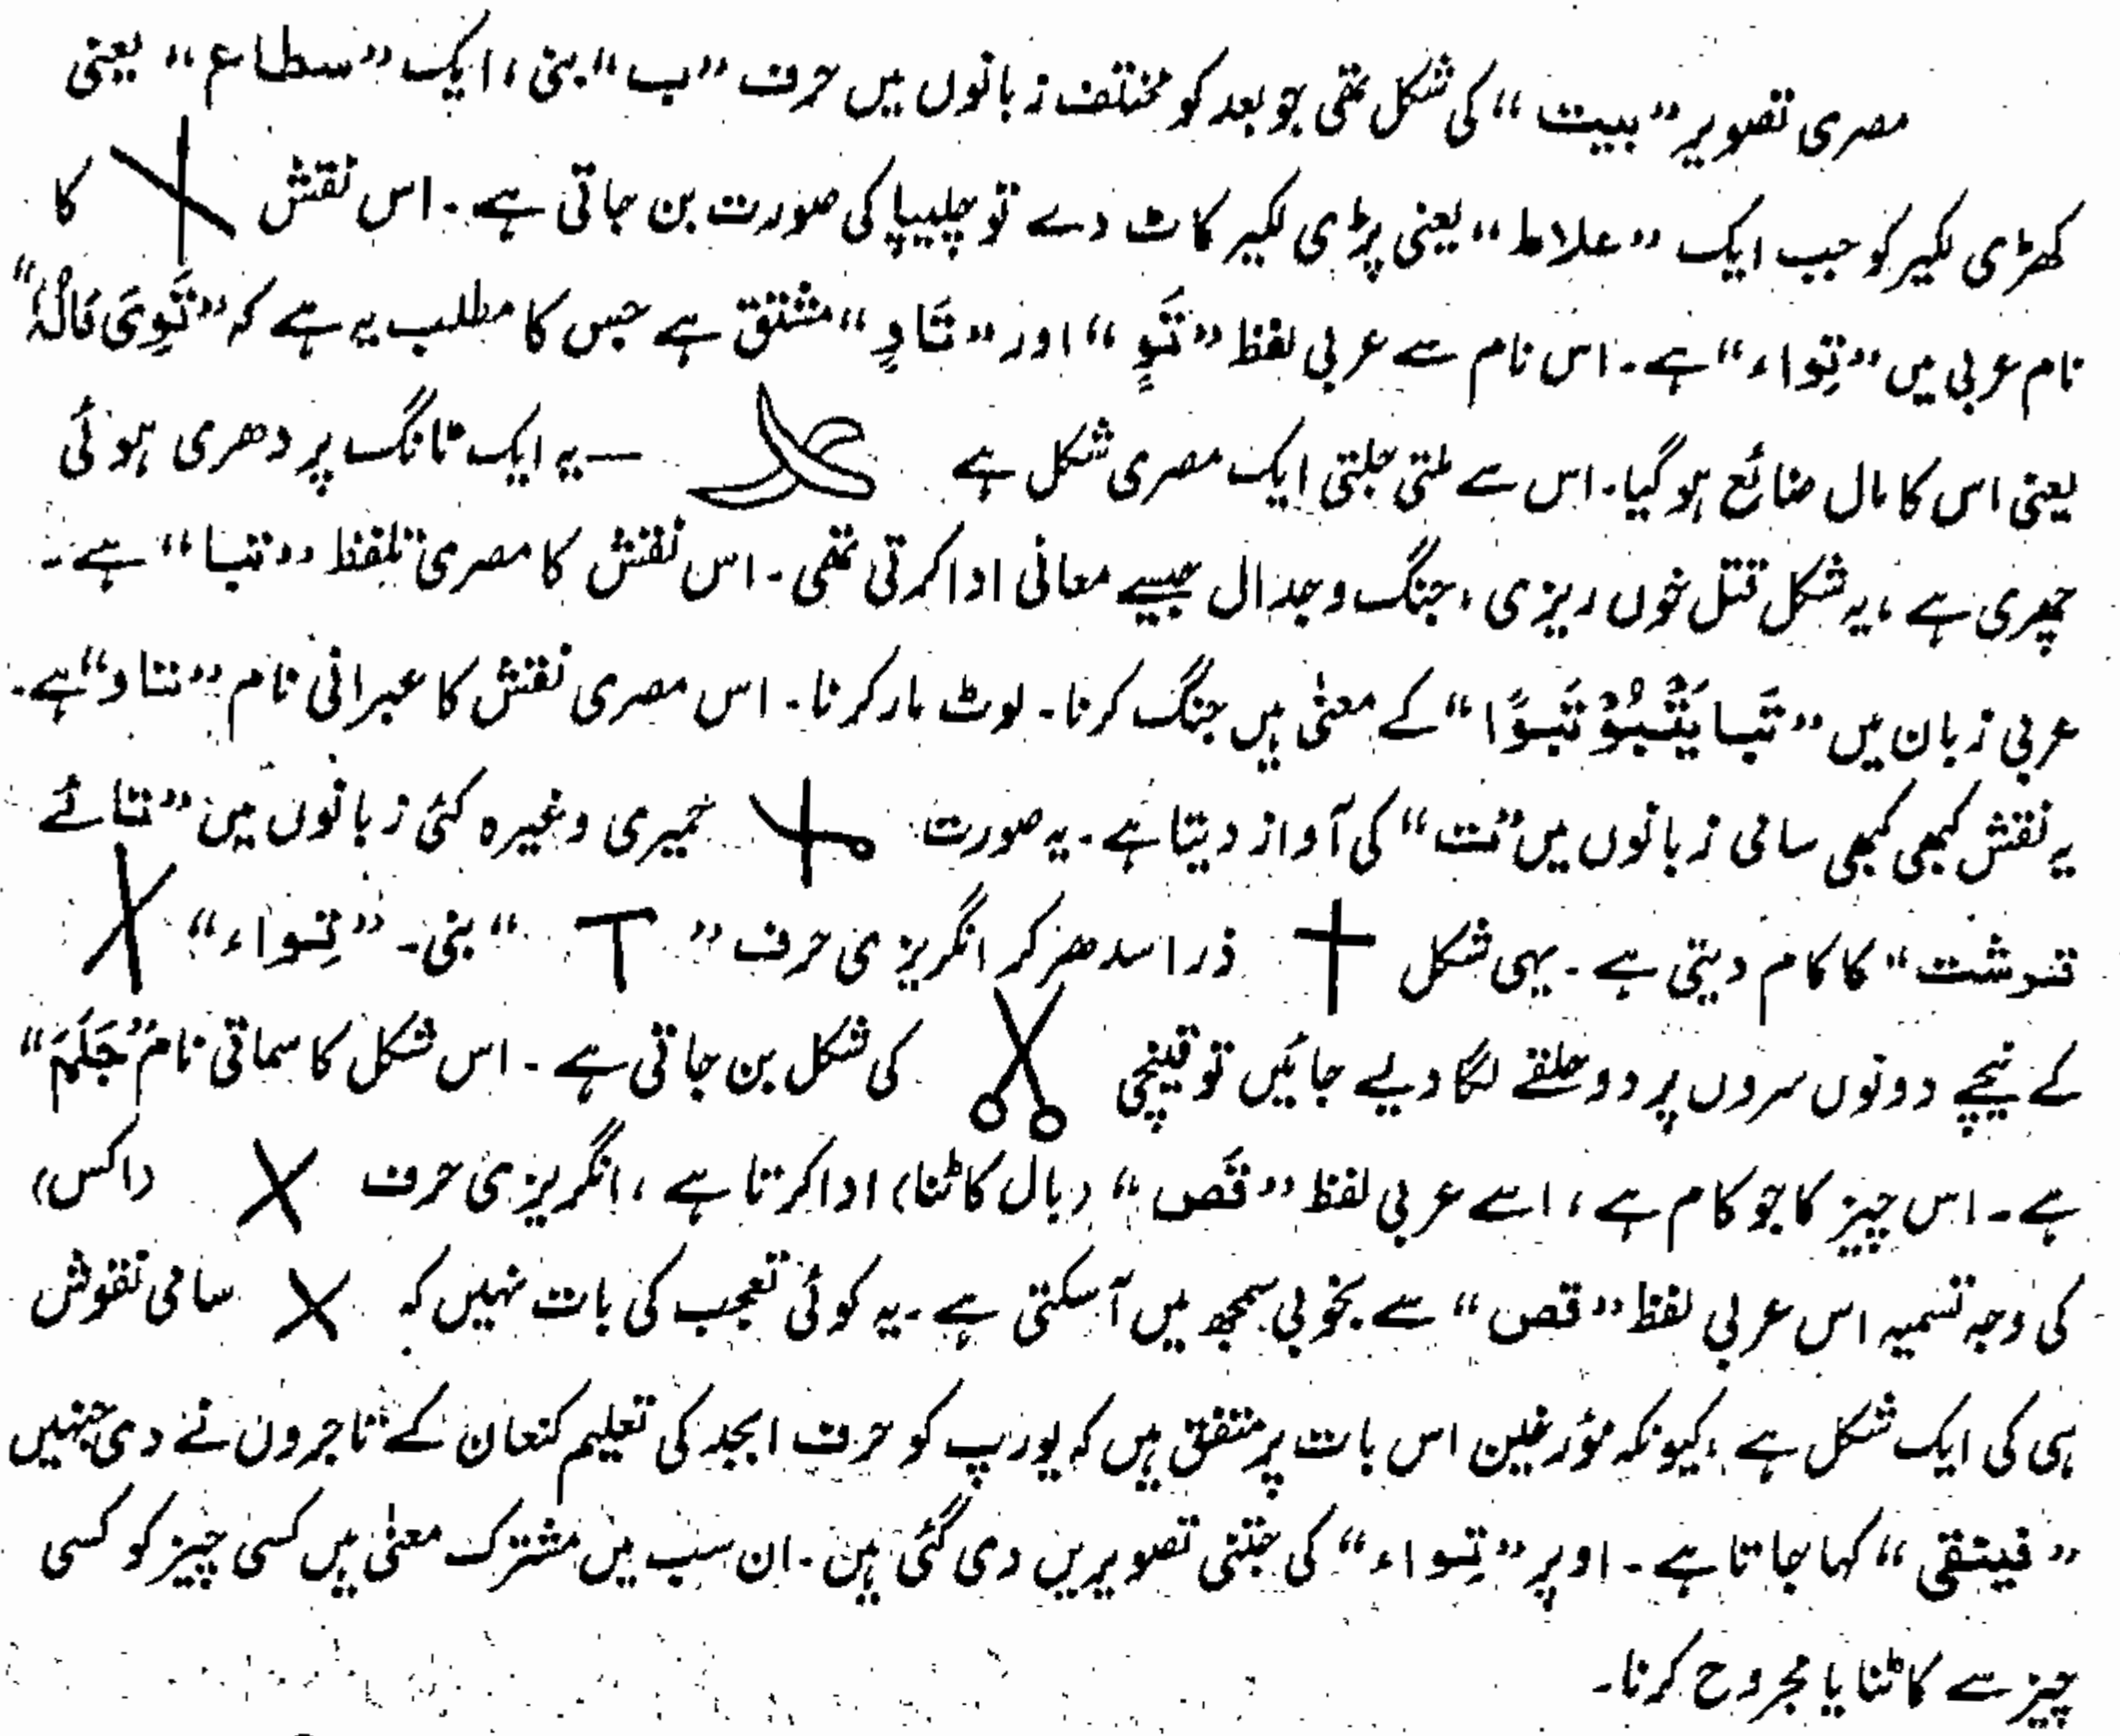 مصری تصویر ”بیت“ کی شکل تھی جو بعد کو مختلف زبانوں میں حرف ”ب“ بنی، ایک ”سطاع“ یعنی
کھڑی لکیر کو جب ایک ”علاط“ یعنی پڑی لکیر کاٹ دے تو چلیپا کی صورت بن جاتی ہے۔ اس نقش کا
نام عربی میں ”تِواء“ ہے۔ اس نام سے عربی لفظ ”تَوٍ“ اور ”تَاوٍ“ مشتق ہے جس کا مطلب یہ ہے کہ ”تَوِیَ مَالُہُ“
یعنی اس کا مال ضائع ہو گیا۔ اس سے ملتی جلتی ایک مصری شکل ہے — یہ ایک ٹانگ پر دھری ہوئی
چھری ہے، یہ شکل قتل خوں ریزی، جنگ و جدال جیسے معانی ادا کرتی تھی۔ اس نقش کا مصری تلفظ ”تبا“ ہے۔
عربی زبان میں ”تَبا یَتْبُوْ تَبوًا“ کے معنیٰ ہیں جنگ کرنا۔ لوٹ مار کرنا۔ اس مصری نقش کا عبرانی نام ”تاو“ ہے۔
یہ نقش کبھی کبھی سامی زبانوں میں ”ت“ کی آواز دیتا ہے۔ یہ صورت حمیری وغیرہ کئی زبانوں میں ”تائے
قرشت“ کا کام دیتی ہے۔ یہی شکل ذرا سدھر کر انگریزی حرف ”T“ بنی۔ ”تِواء“
کے نیچے دونوں سروں پر دو حلقے لگا دیے جائیں تو قینچی کی شکل بن جاتی ہے۔ اس شکل کا سماتی نام ”جَلَمَ“
ہے۔ اس چیز کا جو کام ہے، اسے عربی لفظ ”قَص“ (بال کاٹنا) ادا کرتا ہے، انگریزی حرف X (اکس)
کی وجہ تسمیہ اس عربی لفظ ”قص“ سے بخوبی سمجھ میں آ سکتی ہے۔ یہ کوئی تعجب کی بات نہیں کہ X سامی نقوش
ہی کی ایک شکل ہے، کیونکہ مؤرخین اس بات پر متفق ہیں کہ یورپ کو حرف ابجد کی تعلیم کنعان کے تاجروں نے دی جنہیں
”فینقی“ کہا جاتا ہے۔ اوپر ”تِواء“ کی جتنی تصویریں دی گئی ہیں۔ ان سب میں مشترک معنیٰ ہیں کسی چیز کو کسی
چیز سے کاٹنا یا مجروح کرنا۔